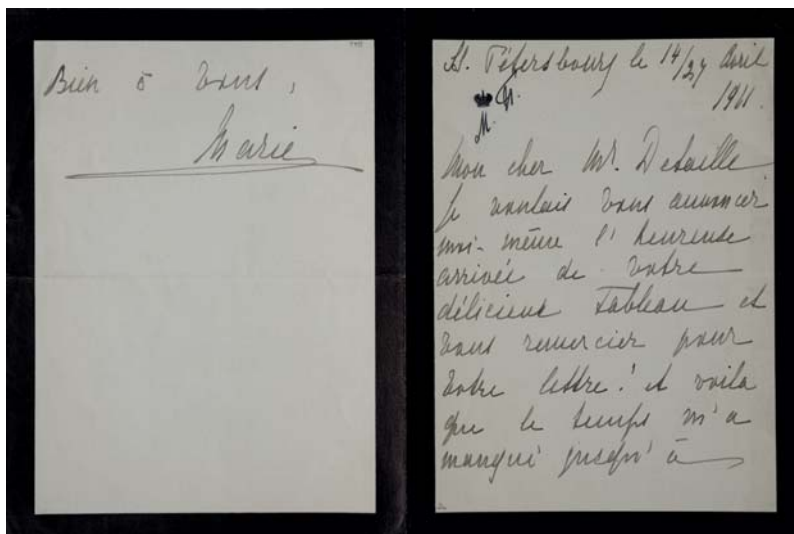 Bien à vous,
Marie
St. Pétersbourg le 14/27 Avril
1911.
M. M.
Mon cher Mr. Detaille
je voulais vous annoncer
moi-même l'heureuse
arrivée de votre
délicieux tableau et
vous remercier pour
votre lettre! et voila
que le temps m'a
manqué jusqu'à